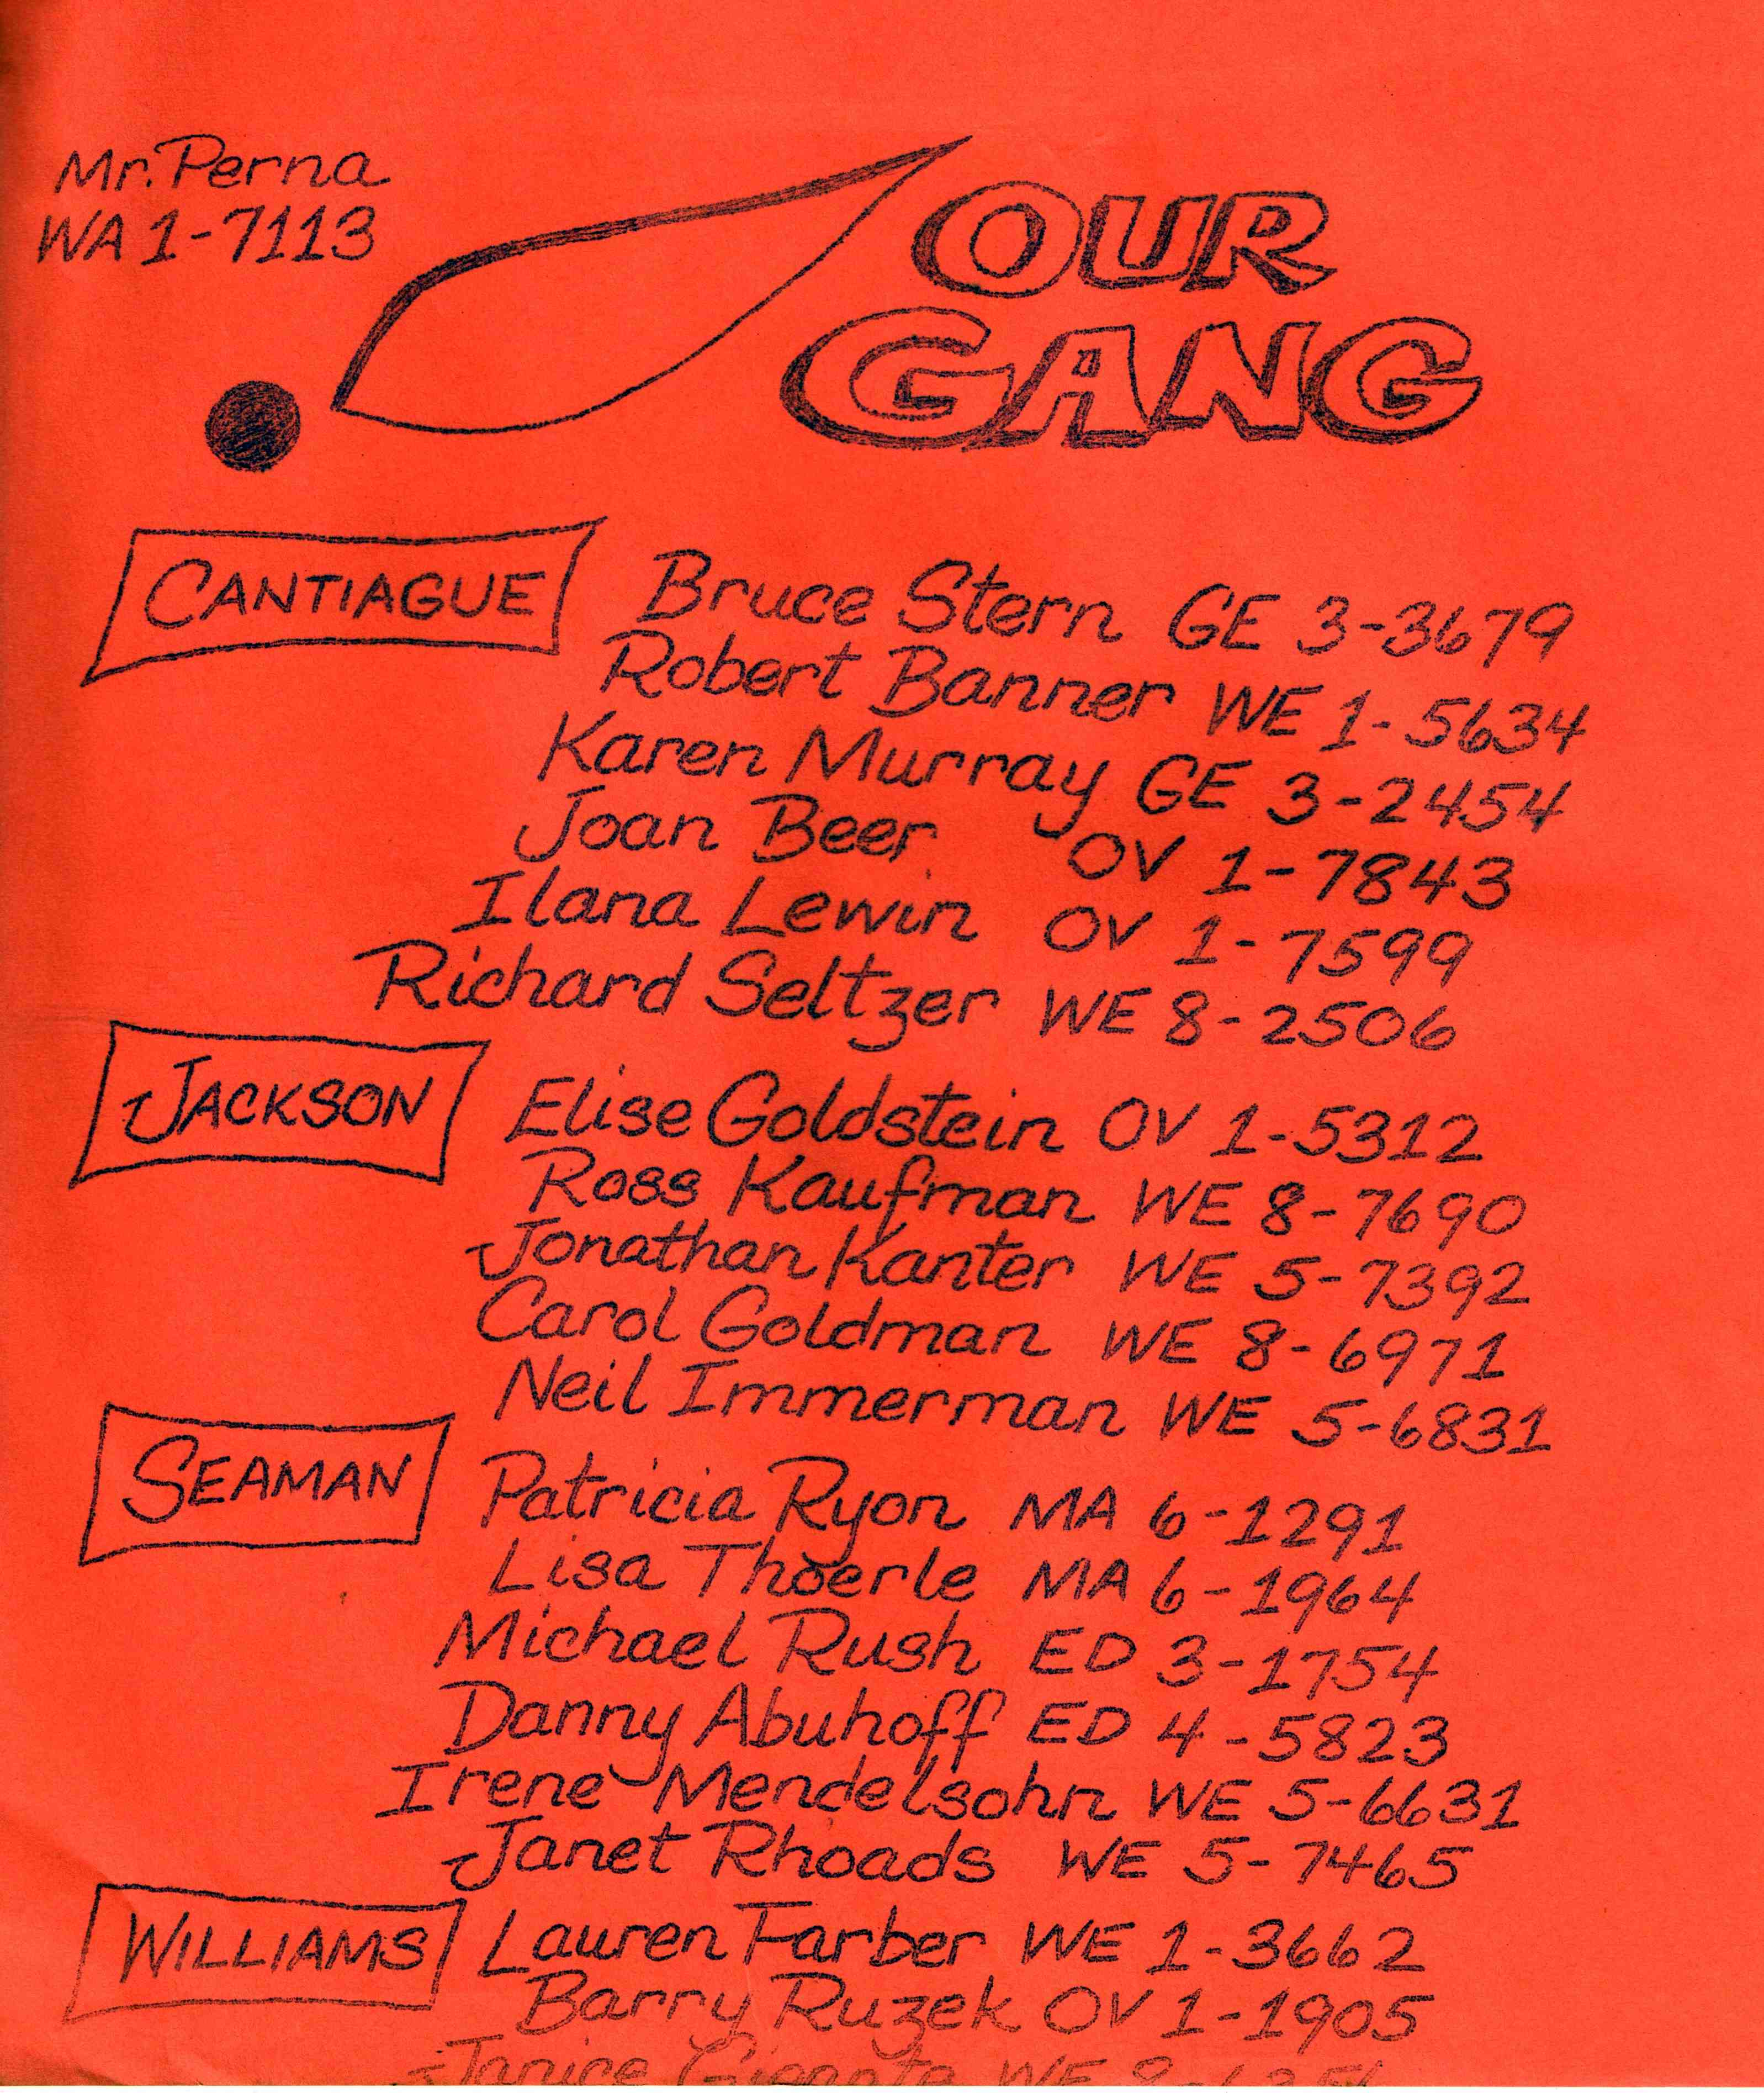 Mr. Perna
WA 1-7113
OUR
GANG
CANTIAGUE
Bruce Stern GE 3-3679
Robert Banner WE 1-5634
Karen Murray GE 3-2454
Joan Beer OV 1-7843
Ilana Lewin OV 1-7599
Richard Seltzer WE 8-2506
JACKSON
Elise Goldstein OV 1-5312
Ross Kaufman WE 8-7690
Jonathan Kanter WE 5-7392
Carol Goldman WE 8-6971
Neil Immerman WE 5-6831
SEAMAN
Patricia Ryon MA 6-1291
Lisa Thoerle MA 6-1964
Michael Rush ED 3-1754
Danny Abuhoff ED 4-5823
Irene Mendelsohn WE 5-6631
Janet Rhoads WE 5-7465
WILLIAMS
Lauren Farber WE 1-3662
Barry Ruzek OV 1-1905
Janice WE